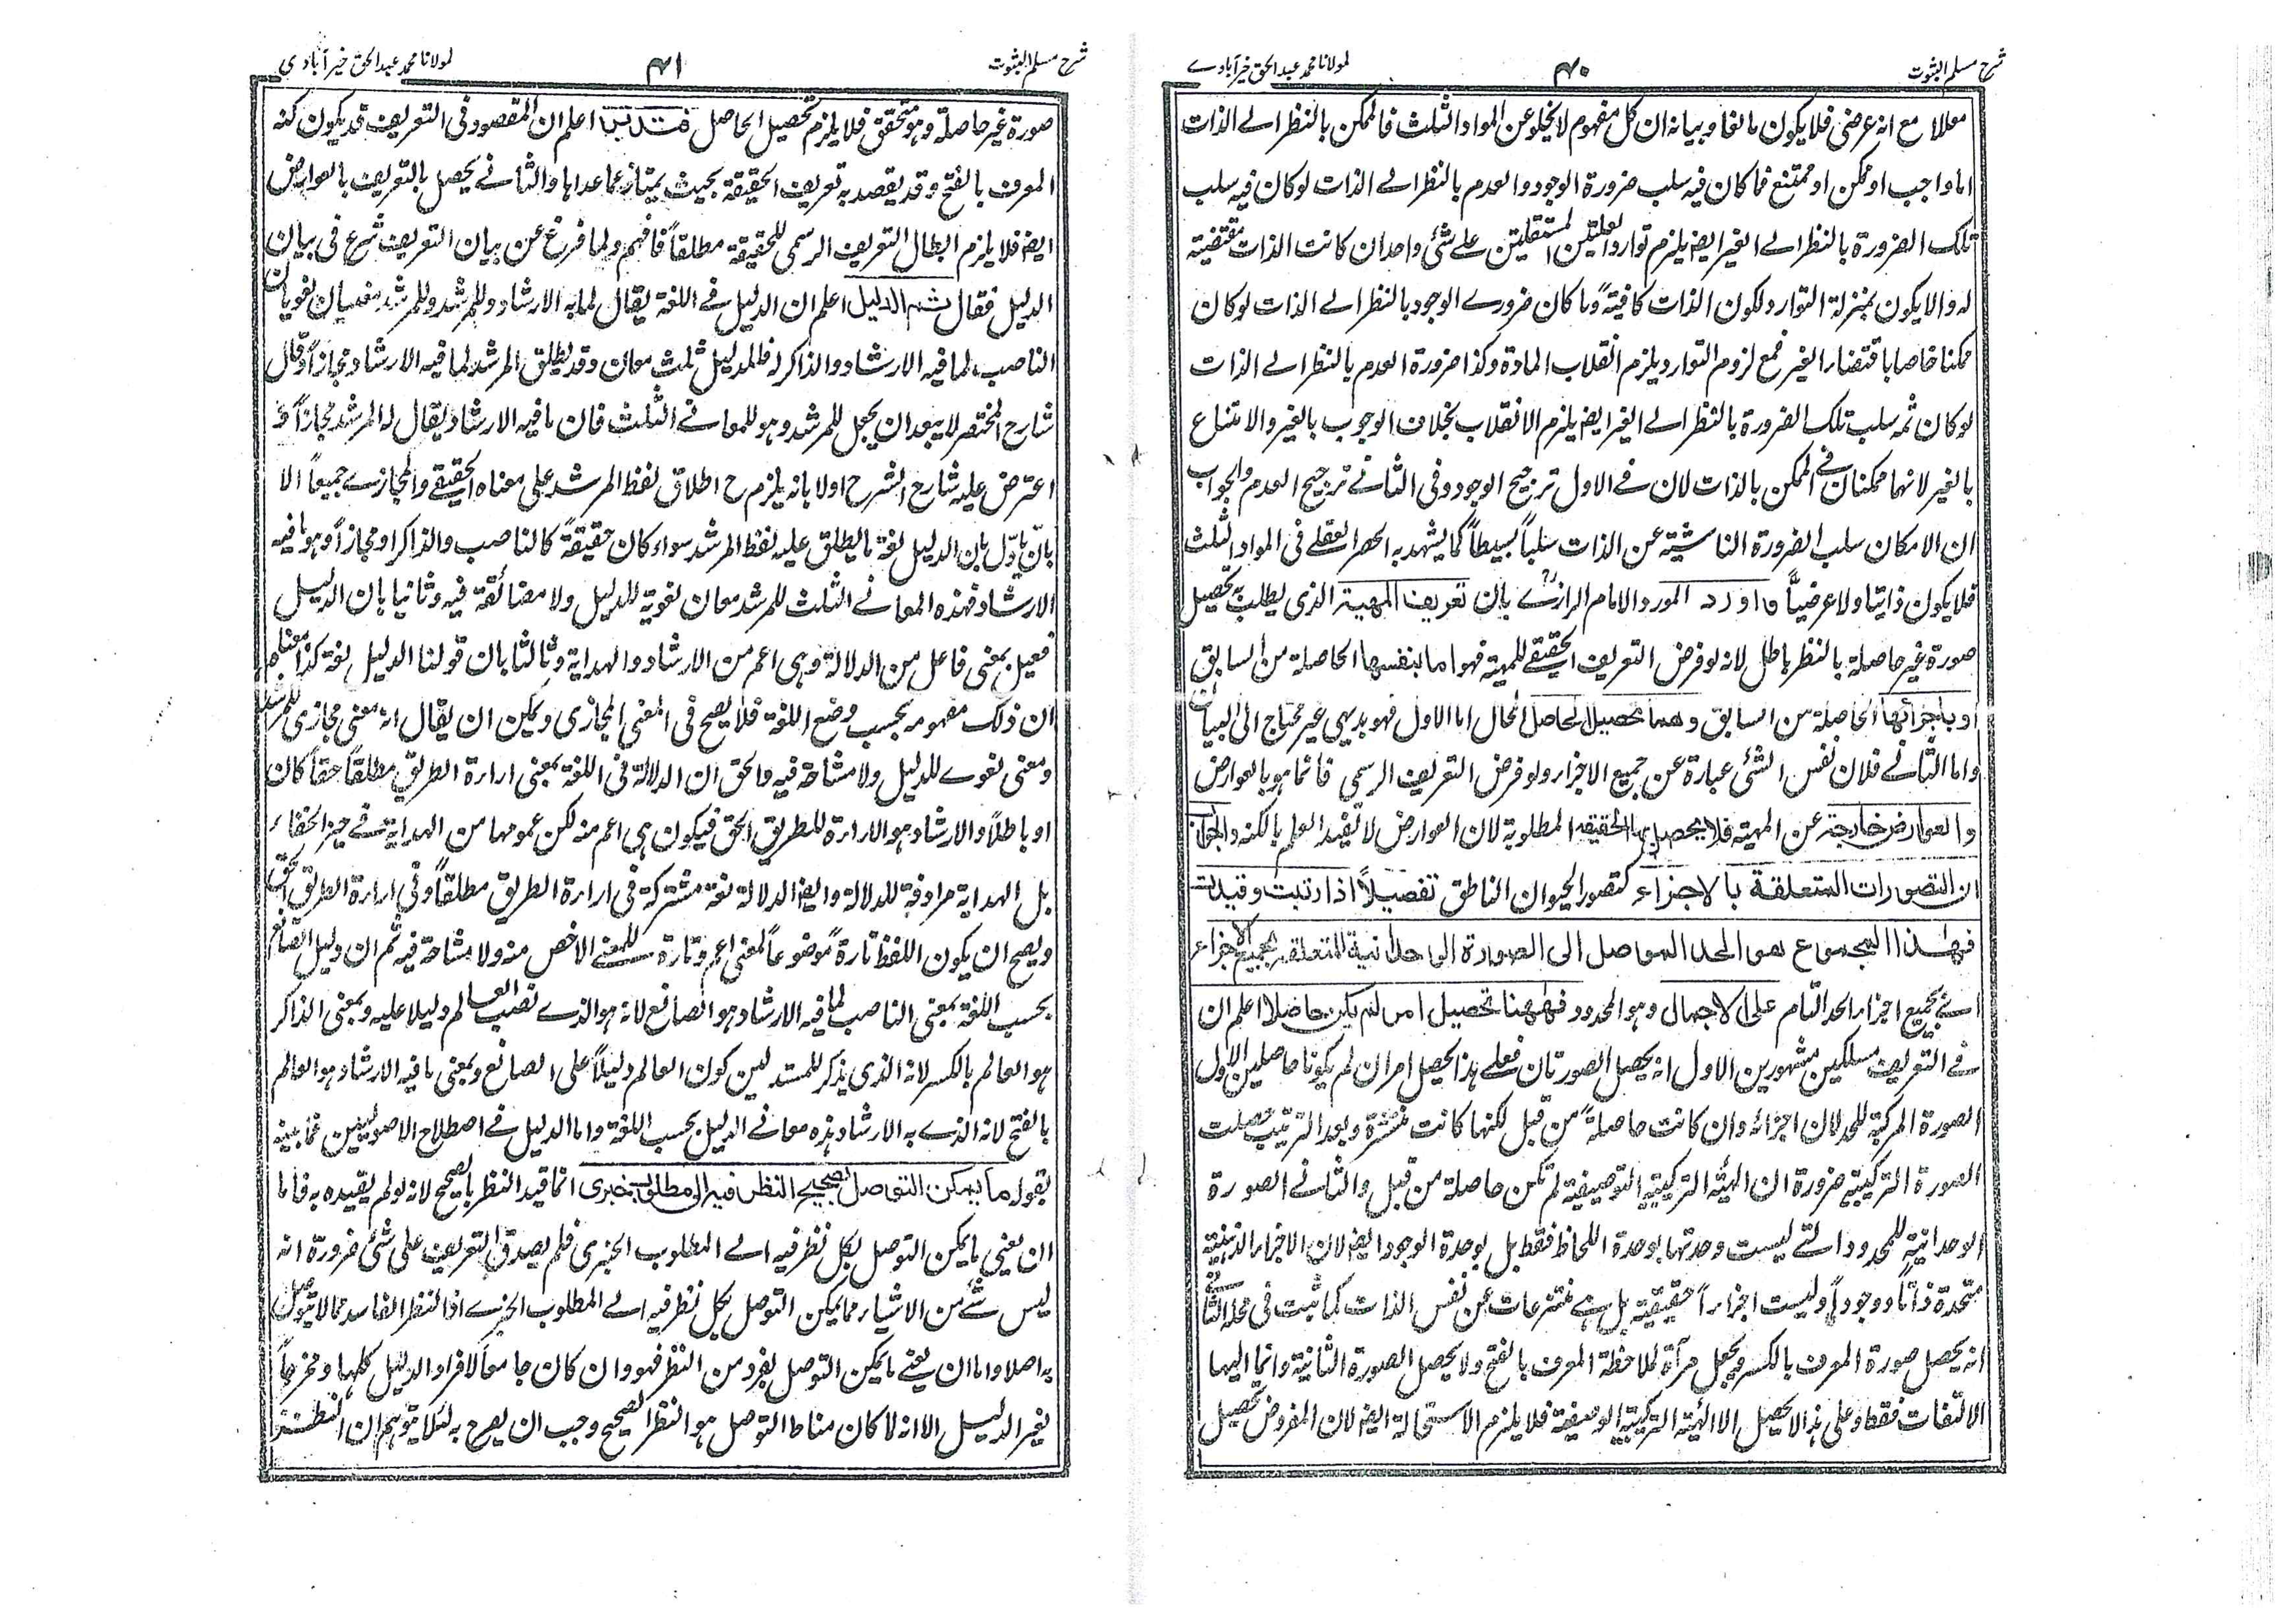 شرح مسلم الثبوت
۴۰
لمولانا محمد عبد الحق خیرآبادے
معللا مع انه عرضی فلا یکون مالفا وبیانه ان کل مفهوم لا یخلو عن المواد الثلث فالممکن بالنظر الے الذات
اما واجب او ممکن او ممتنع فما کان فیه سلب ضرورة الوجود والعدم بالنظر الے الذات لو کان فیه سلب
تلک الضرورة بالنظر الے الغیر ایضا یلزم توارد العلتین المستقلتین علے شئ واحد ان کانت الذات مقتضیة
له والا یکون بمنزلة التوارد لکون الذات کافیةً وما کان ضرورے الوجود بالنظر الے الذات لو کان
ممکنا خاصا باقتضاء الغیر فمع لزوم التوارد یلزم انقلاب المادة وکذا ضرورة العدم بالنظر الے الذات
لو کان ثمه سلب تلک الضرورة بالنظر الے الغیر ایضا یلزم الانقلاب بخلاف الوجوب بالغیر والامتناع
بالغیر لانهما ممکنان فی الممکن بالذات لان فے الاول ترجیح الوجود وفی الثانے ترجیح العدم والجواب
ان الامکان سلب الضرورة الناشیة عن الذات سلباً بسیطاً کما یشهد به الحصر العقلے فی المواد الثلث
فلا یکون ذاتیا ولا عرضیاً واورد المورد الامام الرازیؒ بان تعریف المهیة الذی یطلب به تحصیل
صورة غیر حاصلة بالنظر باطل لانه لو فرض التعریف الحقیقے للمهیة فهو اما بنفسها الحاصلة من السابق
او باجزائها الحاصلة من السابق وهما تحصیل الحاصل المحال اما الاول فهو بدیهی غیر محتاج الی البیان
واما الثانے فلان نفس الشئ عبارة عن جمیع الاجزاء ولو فرض التعریف الرسمی فانما هو بالعوارض
والعوارض خارجة عن المهیة فلا یحصل بها الحقیقة المطلوبة لان العوارض لا تفید العلم بالکنه والجواب
ان التصورات المتعلقة بالاجزاء کتصور الحیوان الناطق تفصیلاً اذا رتبت وقیدت
فهذا المجموع هو الحد الموصل الی الصورة الوحدانیة المتعلقة بجمیع الاجزاء
اے بجمیع اجزاء الحد التام علی الاجمال وهو المحدود فههنا تحصیل امر لم یکن حاصلا اعلم ان
فے التعریف مسلکین مشهورین الاول انه یحصل الصورتان فعلے هذا یحصل امران لم یکونا حاصلین الاول
الصورة المرکبة للحد لان اجزائه وان کانت حاصلةً من قبل لکنها کانت منتشرة وبعد الترتیب حصلت
الصورة الترکیبیة ضرورة ان الهیئة الترکیبیة التوصیفیة لم تکن حاصلة من قبل والثانے الصورة
الوحدانیة للمحدود التے لیست وحدتها بوحدة اللحاظ فقط بل بوحدة الوجود ایضا لان الاجزاء الذهنیة
متحدة ذاتاً ووجوداً ولیست اجزاءاً حقیقیة بل هے منتزعات عن نفس الذات کما ثبت فی محله الثانے
انه یحصل صورة المعرف بالکسر ویجعل مرآة لملاحظة المعرف بالفتح ولا یحصل الصورة الثانیة وانما الیها
الالتفات فقط وعلی هذا لا یحصل الا الهیئة الترکیبیة الوصیفیة فلا یلزم الاستحالة ایضا لان المفروض تحصیل
شرح مسلم الثبوت
۴۱
لمولانا محمد عبد الحق خیرآبادی
صورة غیر حاصلة وهو متحقق فلا یلزم تحصیل الحاصل فتدبر اعلم ان المقصود فی التعریف قد یکون کنه
المعرف بالفتح وقد یقصد به تعریف الحقیقة بحیث یمتاز عما عداها والثانے یحصل بالتعریف بالعوارض
ایضا فلا یلزم ابطال التعریف الرسمی للحقیقة مطلقاً فافهم ولما فرغ عن بیان التعریف شرع فی بیان
الدلیل فقال ثم الدلیل اعلم ان الدلیل فے اللغة یقال لما به الارشاد وللمرشد وللمرشد معنیان لغویان
الناصب لما فیه الارشاد والذاکر له فللدلیل ثلث معان وقد یطلق المرشد لما فیه الارشاد مجازاً وقال
شارح المختصر لا یبعد ان یجعل للمرشد وهو للمعانے الثلث فان ما فیه الارشاد یقال له المرشد مجازاً و
اعترض علیه شارح الشرح اولا بانه یلزم ح اطلاق لفظ المرشد علی معناه الحقیقے والمجازے جمیعاً الا
بان یأول بان الدلیل لغة ما یطلق علیه لفظ المرشد سواء کان حقیقةً کالناصب والذاکر او مجازاً وهو ما فیه
الارشاد فهذه المعانے الثلث للمرشد معان لغویة للدلیل ولا مضائقة فیه وثانیا بان الدلیل
فعیل بمعنی فاعل من الدلالة وهی اعم من الارشاد والهدایة وثالثا بان قولنا الدلیل لغة کذا معناه
ان ذلک مفهومه بحسب وضع اللغة فلا یصح فی المعنی المجازی ویمکن ان یقال انه معنی مجازی للمرشد
ومعنی لغوے للدلیل ولا مشاحة فیه والحق ان الدلالة فی اللغة بمعنی اراءة الطریق مطلقاً حقاً کان
او باطلاً والارشاد هو الاراءة للطریق الحق فیکون هی اعم منه لکن عمومها من الهدایة فے حیز الخفاء
بل الهدایة مرادفة للدلالة وایضا الدلالة لغة مشترکة فی اراءة الطریق مطلقاً وفی اراءة الطریق الحق
ویصح ان یکون اللفظ تارةً موضوعاً لمعنی اعم وتارة للمعنے الاخص منه ولا مشاحة فیه ثم ان دلیل الصانع
بحسب اللغة بمعنی الناصب لما فیه الارشاد هو الصانع لانه هو الذے نصب العالم دلیلا علیه وبمعنی الذاکر
هو العالم بالکسر لانه الذی یذکر للمستدلین کون العالم دلیلاً علی الصانع وبمعنی ما فیه الارشاد هو العالم
بالفتح لانه الذے به الارشاد هذه معانے الدلیل بحسب اللغة واما الدلیل فے اصطلاح الاصولیین فما بینه
بقوله ما یمکن التوصل بصحیح النظر فیه الی مطلوب خبری انما قید النظر بالصحیح لانه لو لم یقیده به فاما
ان یعنی ما یمکن التوصل بکل نظر فیه الے المطلوب الخبری فلم یصدق التعریف علی شئ ضرورة انه
لیس شے من الاشیاء مما یمکن التوصل بکل نظر فیه الے المطلوب الخبرے اذ النظر الفاسد مما لا یتوصل
به اصلا واما ان یعنے ما یمکن التوصل بفرد من النظر فهو وان کان جامعاً لافراد الدلیل کلها ومخرجاً
لغیر الدلیل الا انه لما کان مناط التوصل هو النظر الصحیح وجب ان یصرح به لئلا یتوهم ان النظر